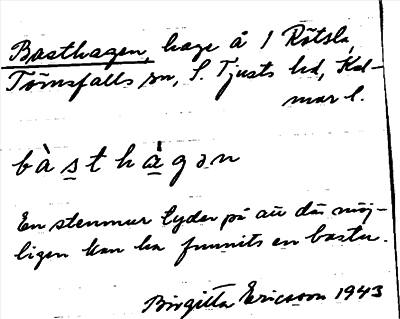 Basthagen, hage å 1 Rötsla,
Törnsfalls sn, S. Tjusts hd, Kal-
mar l.
bàsthàgən
En stenmur tyder på att där möj-
ligen kan ha funnits en bastu.
Birgitta Ericsson 1943